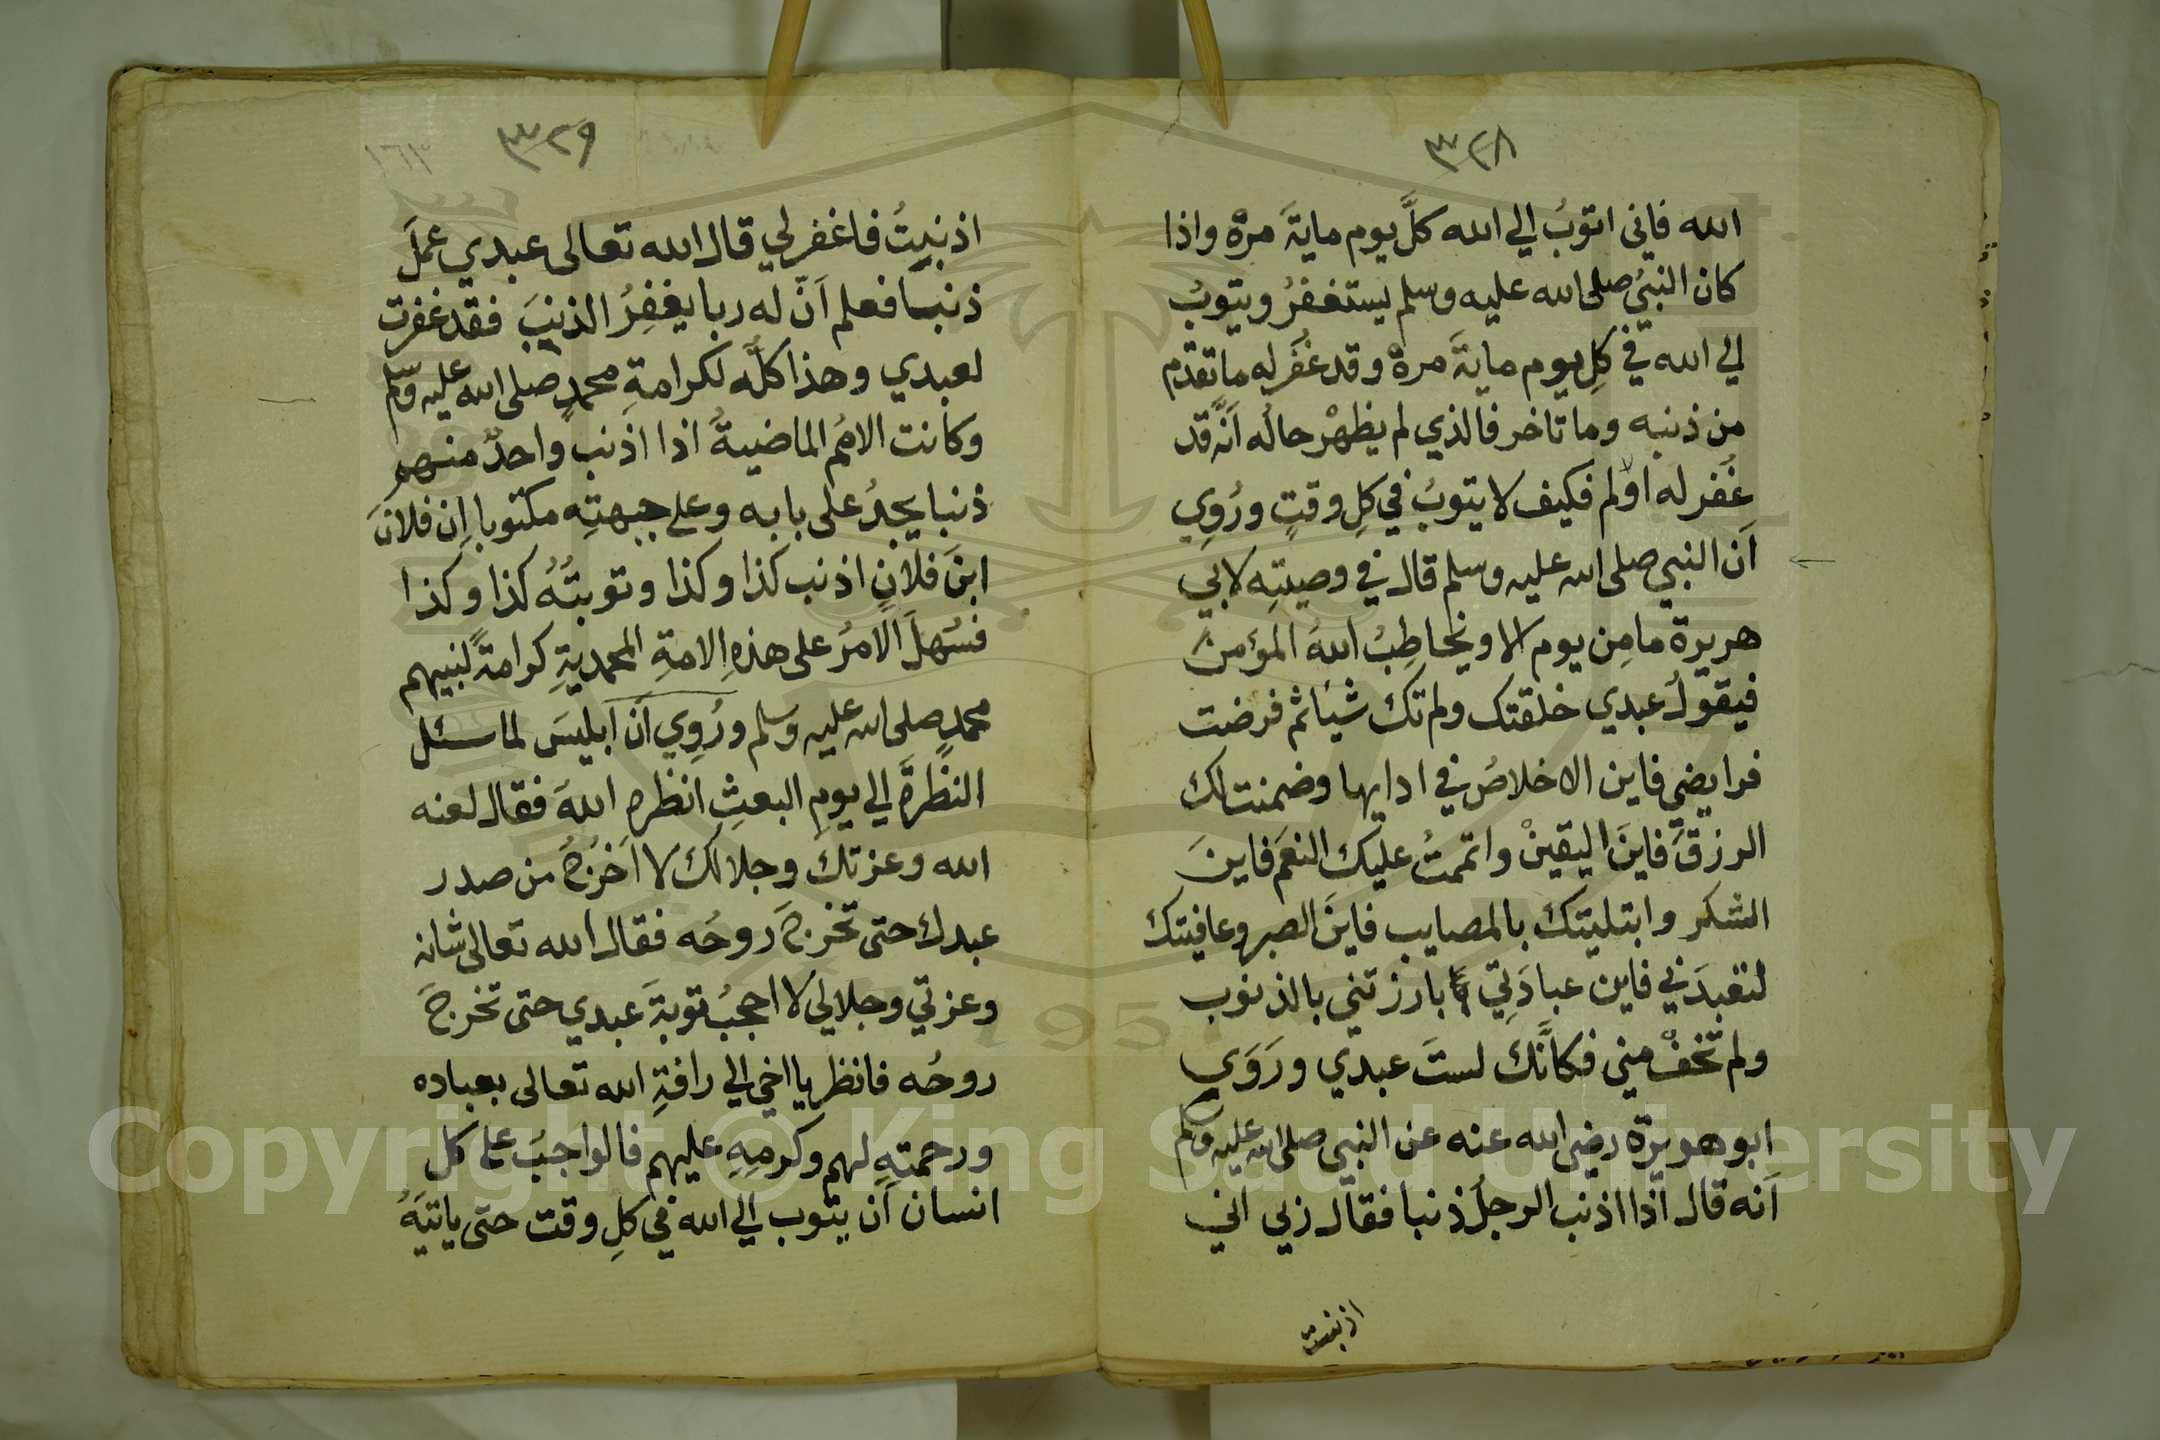 ٣٢٨
الله فاني اتوبُ الي الله كلَّ يوم مايةَ مرةْ واذا
كان النبيُ صلى الله عليه وسلم يستغفرُ ويتوبُ
الي الله في كلِ يوم مايةَ مرةْ وقد غُفَر له ما تقدم
من ذنبه وما تاخر فالذي لم يظهرْ حالُه اَنَّه قد
غُفر له او لا فكيف لا يتوبُ في كلِ وقتٍ ورُوِي
اَن النبي صلى الله عليه وسلم قال في وصيتِه لابي
هريرة ما مِن يوم الا ويخاطِبُ اللهُ المؤمن
فيقولُ عبدي خلقتك ولم تك شيأ ثم فرضت
فرايضي فاين الاخلاصُ في ادايها وضمنت لك
الرزقَ فاينَ اليقينْ واتممتُ عليك النعَم فاينَ
الشكر وابتليتك بالمصايب فاينَ الصبر وعافيتك
لتعبدَني فاين عبادَتِي بارزتني بالذنوب
ولم تخفْ مني فكانَّك لستَ عبدي ورَوَي
ابو هريرة رضي الله عنه عن النبي صلى الله عليه وسلم
اَنه قال اذا اذنب الرجلُ ذنبا فقال ربي اني
اذنبت
٣٢٩
١٦٣
اذنبتُ فاغفر لي قال الله تعالى عبدي عمَلَ
ذنبا فعلم اَنَّ له ربا يغفِرُ الذنبَ فقد غفرت
لعبدي وهذا كلُّه لكرامةِ محمدٍ صلى الله عليه وسلم
وكانت الامُم الماضيةُ اذا اذنب واحدٌ منهم
ذنبا يجدُ على بابه وعلى جبهتِه مكتوبا اِن فلانَ
ابنَ فلانٍ اذنب كذا وكذا وتوبتُهُ كذا وكذا
فسَهلَ الامرُ على هذهِ الامةِ المحمديةِ كرامةً لنبيهم
محمدٍ صلى الله عليه وسلم ورُوِي اَن ابليسَ لما سئل
النظرةَ الي يومِ البعثِ انظره اللهَ فقال لعنه
الله وعزتك وجلالك لا اَخرُجُ من صدر
عبدك حتى تخرجَ روحُه فقال الله تعالى شانه
وعزتي وجلالي لا احجبُ توبةَ عبدي حتى تخرجَ
روحُه فانظر يا اخي الي رافةِ الله تعالى بعباده
ورحمتهِ لهم وكرمِهِ عليهم فالواجبُ على كل
انسان اَن يتوب الي الله في كلِ وقت حتى ياتيَهُ
Copyright © King Saud University
1957